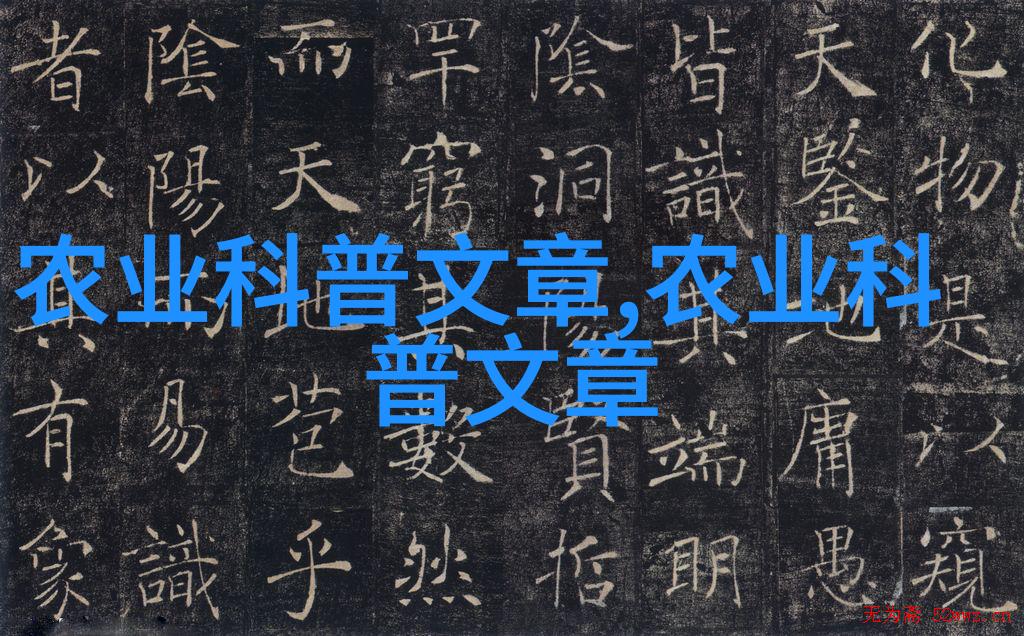 化物是以窺
天鑒地庸愚
皆識其端明
陰洞陽賢哲
罕窮其數然
而天地苞乎
陰陽而易識
者以其有象
农业科普文章,农业科
普文章
无为斋 52wwz.cn